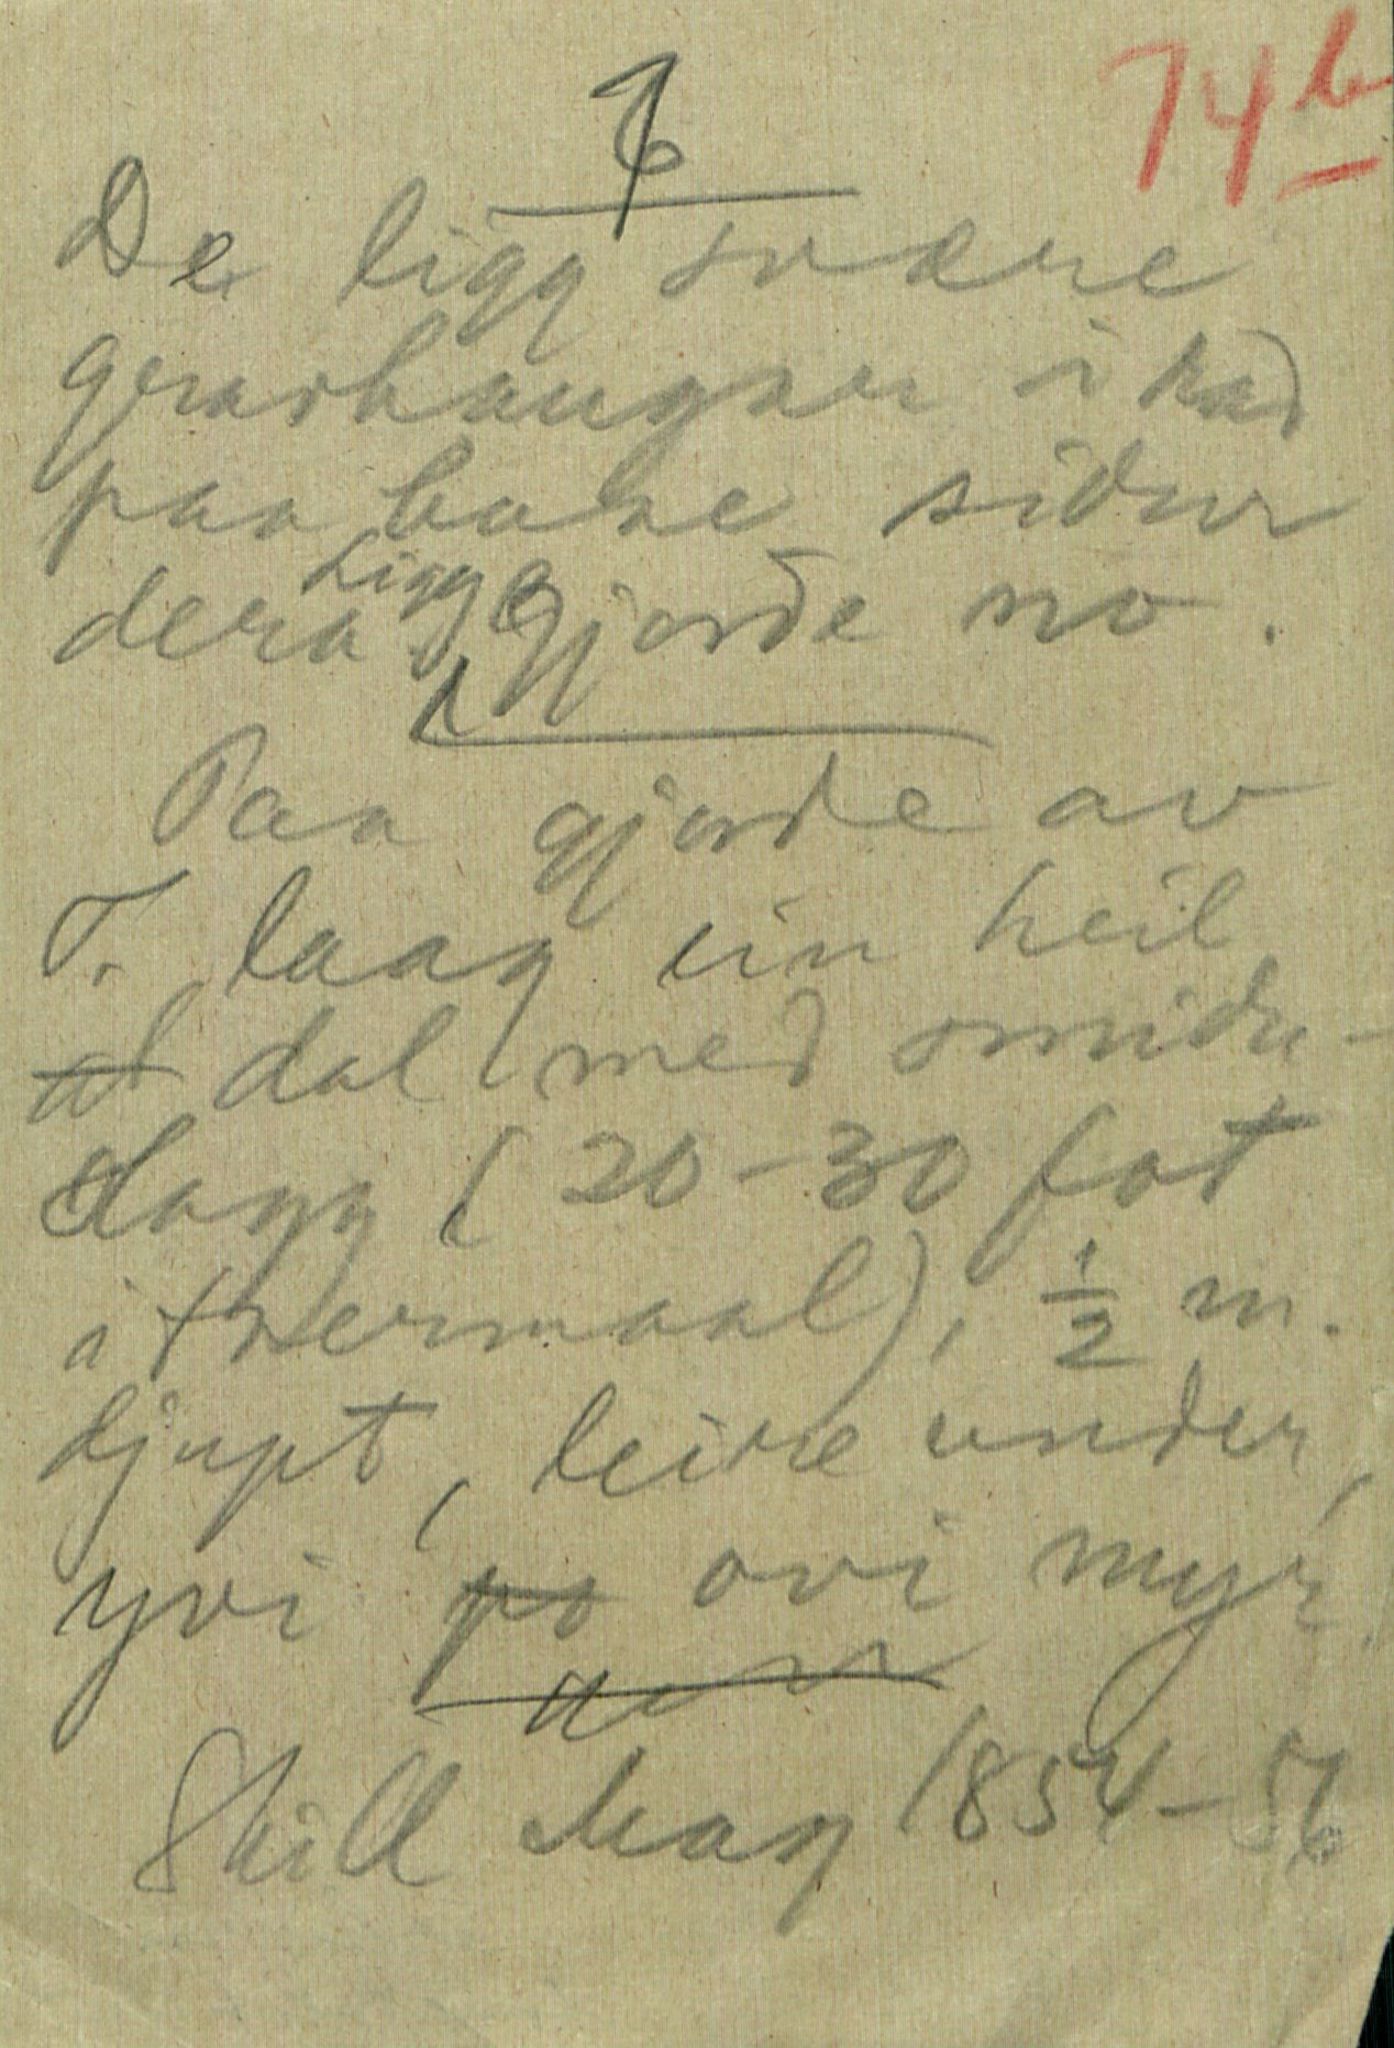 74b
De ligg svære
gravhaugar i rad
paa baae sidur
dera. Ligg e gjorde no.
Paa gjorde av
T. laag ein heil
dal med smidu-
slagg (20-30 fot
i tvermaal), ½ m.
djupt, leire under,
yvi ovi myr.
Skill Mag 1854-56